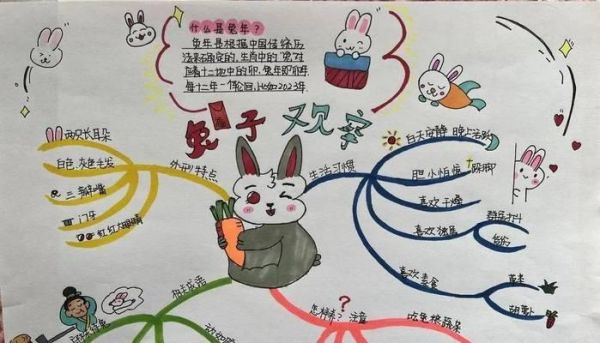 什么是兔年？
兔年是根据中国传统历
法来确定的，生肖中的"兔"对
应着十二地支中的卯，兔年即卯年
每十二年一个轮回，比如2023年
兔子观察
外形特点
两只长耳朵
白色、灰色毛发
三瓣嘴
门牙
红红大眼睛
生活习惯
白天安静 晚上活跃
胆小怕惊
喜欢干燥
喜欢独居
群居打斗
喜欢素食
青草
胡萝卜
相关成语
怎样养？ 注意
吃兔粮蔬菜
守株待兔